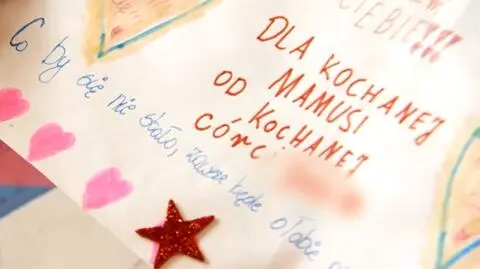 CIEBIE!!!
DLA KOCHANEJ
MAMUSI
OD KOCHANEJ
CÓRC
Co by się nie stało, zawsze będę